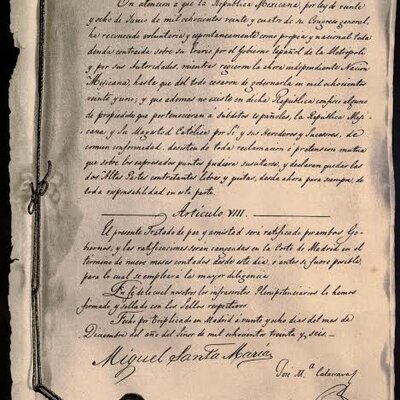 En atencion a que la Republica Mexicana, por ley de veinte
y ocho de Junio de mil ochocientos veinte y cuatro de su Congreso general,
ha reconocido voluntaria y espontaneamente como propia y nacional toda
deuda contraida sobre su Erario por el Gobierno Español de la Metropoli
y por sus Autoridades, mientras rigieron la ahora independiente Nacion
Mexicana, hasta que del todo cesaron de gobernarla en mil ochocientos
veinte y uno; y que ademas no existe en dicha Republica confisco alguno
de propiedades que pertenecieran a subditos Españoles, la Republica Meji-
cana, y Su Magestad Catolica por Sí y sus herederos y Sucesores, de
comun conformidad, desisten de toda reclamacion ó pretension mutua
que sobre los expresados puntos pudiera suscitarse, y declaran quedar las
dos Altas Partes contratantes libres y quitas, desde ahora para siempre, de
toda responsabilidad en esta parte.
Artículo VIII.
El presente Tratado de paz y amistad será ratificado por ambos Go-
biernos, y las ratificaciones serán cangeadas en la Corte de Madrid en el
término de nueve meses contados desde este dia, ó antes si fuere posible,
para lo cual se empleara la mayor diligencia.
En fé de lo cual nosotros los infrascritos Plenipotenciarios lo hemos
firmado y sellado con los Sellos respectivos.
Fecho por triplicado en Madrid á veinte y ocho dias del mes de
Diciembre del año del Señor de mil ochocientos treinta y seis.
Miguel Santa Maria
José M.ª Calatrava